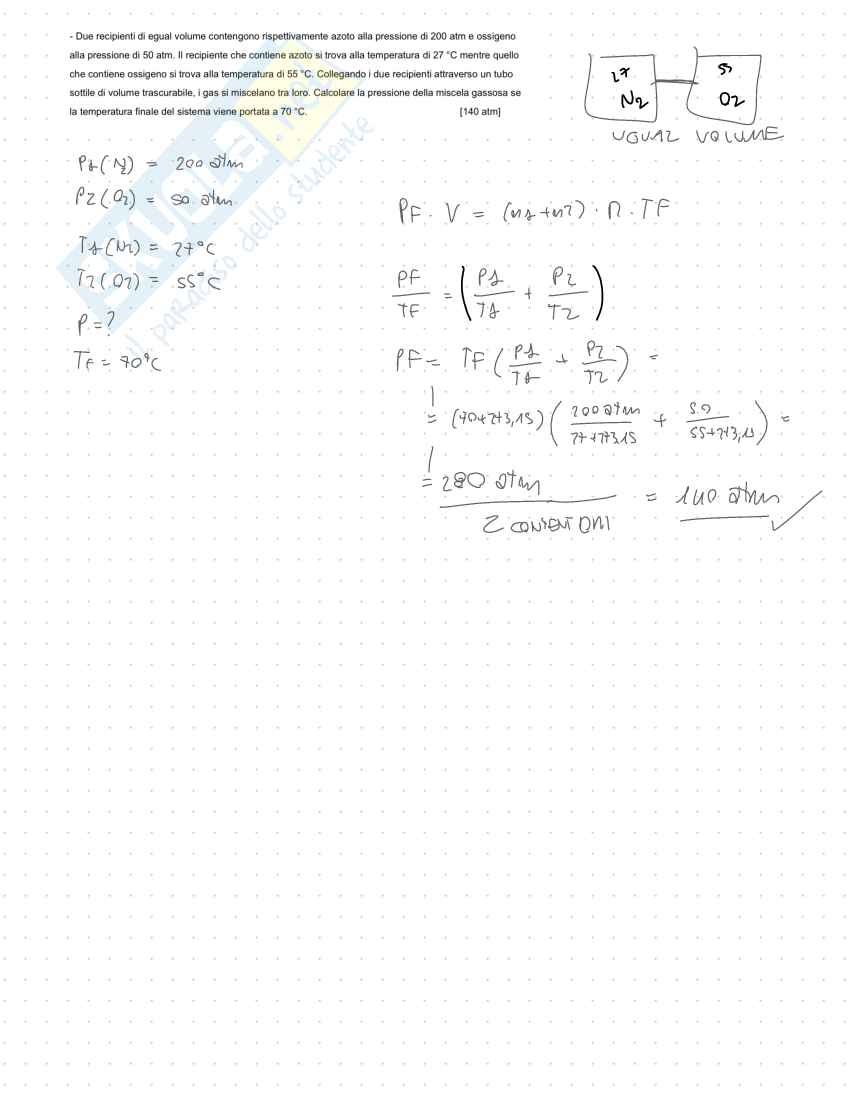 - Due recipienti di egual volume contengono rispettivamente azoto alla pressione di 200 atm e ossigeno
alla pressione di 50 atm. Il recipiente che contiene azoto si trova alla temperatura di 27 °C mentre quello
che contiene ossigeno si trova alla temperatura di 55 °C. Collegando i due recipienti attraverso un tubo
sottile di volume trascurabile, i gas si miscelano tra loro. Calcolare la pressione della miscela gassosa se
la temperatura finale del sistema viene portata a 70 °C. [140 atm]
27 55
N2 O2
UGUAL VOLUME
P1(N2) = 200 atm
P2(O2) = 50 atm
T1(N2) = 27°C
T2(O2) = 55°C
P = ?
TF = 70°C
PF · V = (n1+n2) · R · TF
PF/TF = (P1/T1 + P2/T2)
PF = TF (P1/T1 + P2/T2) =
= (70+273,15) (200 atm/27+273,15 + 50/55+273,15) =
= 280 atm / 2 CONTENITORI = 140 atm
SKUOLA.net
il paradiso dello studente